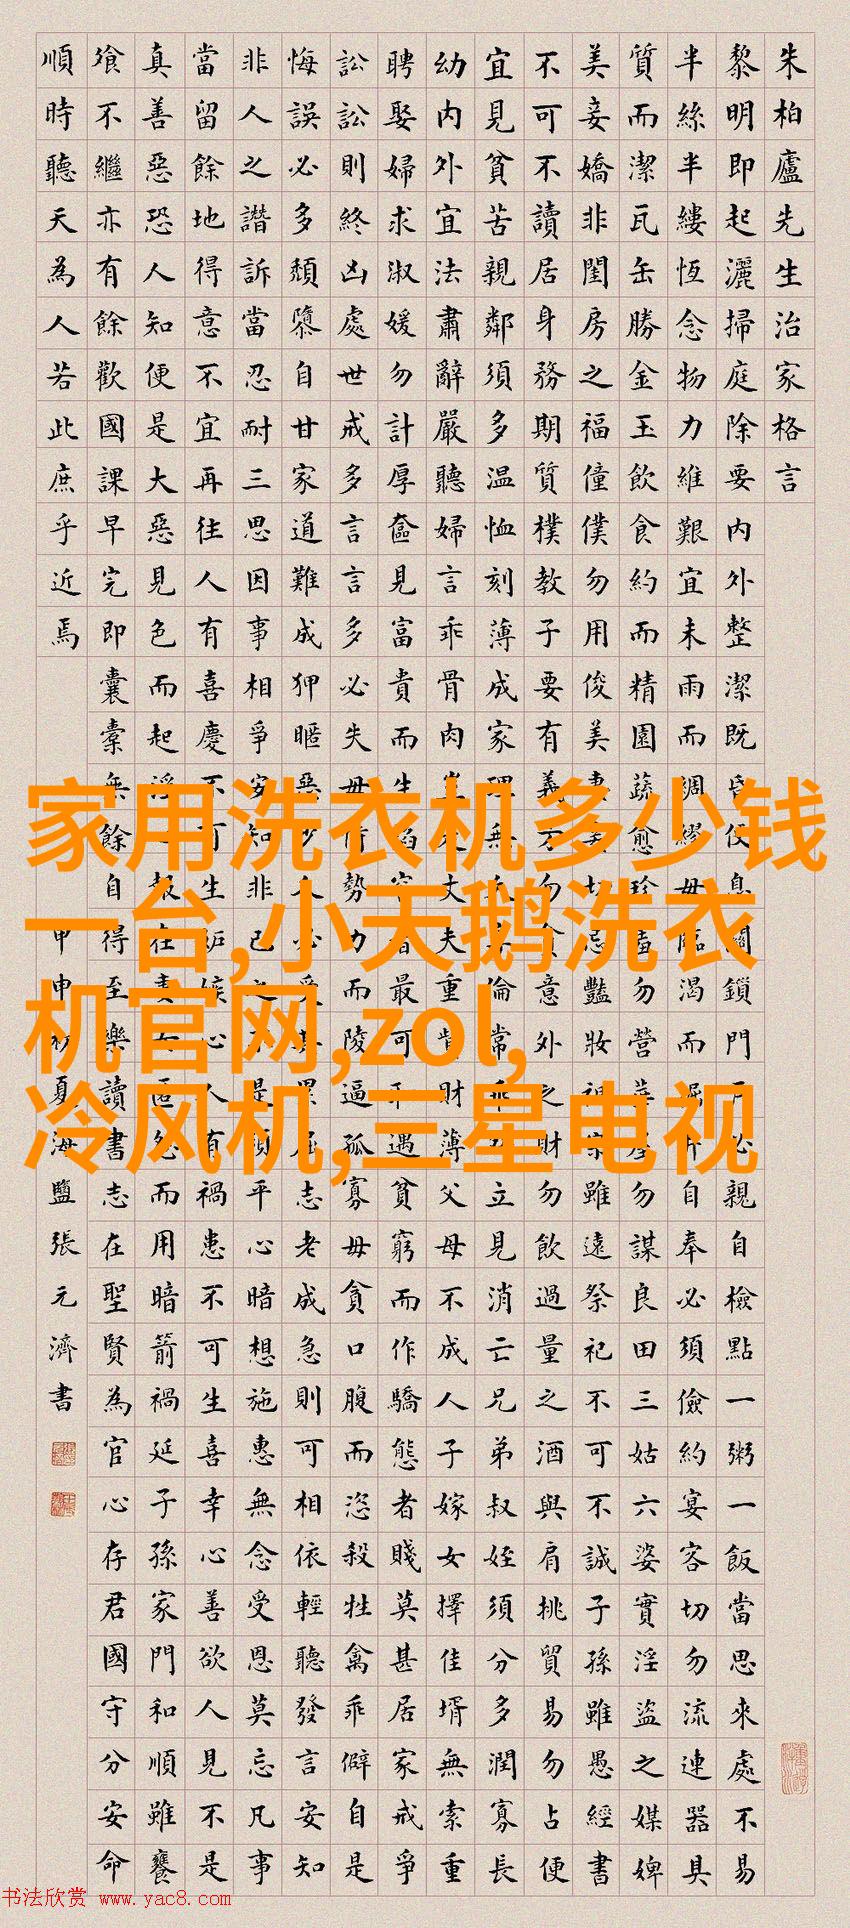 朱柏廬先生治家格言
黎明即起灑掃庭除要內外整潔既昏便息關鎖門戶必親自檢點一粥一飯當思來處不易
半絲半縷恆念物力維艱宜未雨而綢繆毋臨渴而掘井自奉必須儉約宴客切勿流連器具
質而潔瓦缶勝金玉飲食約而精園蔬愈珍羞勿營華屋勿謀良田三姑六婆實淫盜之媒婢
美妾嬌非閨房之福僮僕勿用俊美妻妾切忌豔妝祖宗雖遠祭祀不可不誠子孫雖愚經書
不可不讀居身務期質樸教子要有義方勿貪意外之財勿飲過量之酒與肩挑貿易勿占便
宜見貧苦親鄰須多溫恤刻薄成家理無久享倫常乖舛立見消亡兄弟叔姪須分多潤寡長
幼內外宜法肅辭嚴聽婦言乖骨肉豈丈夫重貲財薄父母不成人子嫁女擇佳壻無索重
聘娶婦求淑媛勿計厚奩見富貴而生諂容者最可恥遇貧窮而作驕態者賤莫甚居家戒爭
訟訟則終凶處世戒多言言多必失毋恃勢力而陵逼孤寡毋貪口腹而恣殺牲禽乖僻自是
悔誤必多頹隳自甘家道難成狎暱惡少久必受其累屈志老成急則可相依輕聽發言安知
非人之譖訴當忍耐三思因事相爭安知非己之不是須平心暗想施惠無念受恩莫忘凡事
當留餘地得意不宜再往人有喜慶不可生妒嫉心人有禍患不可生喜幸心善欲人見不是
真善惡恐人知便是大惡見色而起淫心報在妻女匿怨而用暗箭禍延子孫家門和順雖饔
飧不繼亦有餘歡國課早完即囊橐無餘自得至樂讀書志在聖賢為官心存君國守分安命
順時聽天為人若此庶乎近焉
甲申初夏海鹽張元濟書
家用洗衣机多少钱
一台,小天鹅洗衣
机官网,zol,
冷风机,三星电视
书法欣赏 www.yac8.com